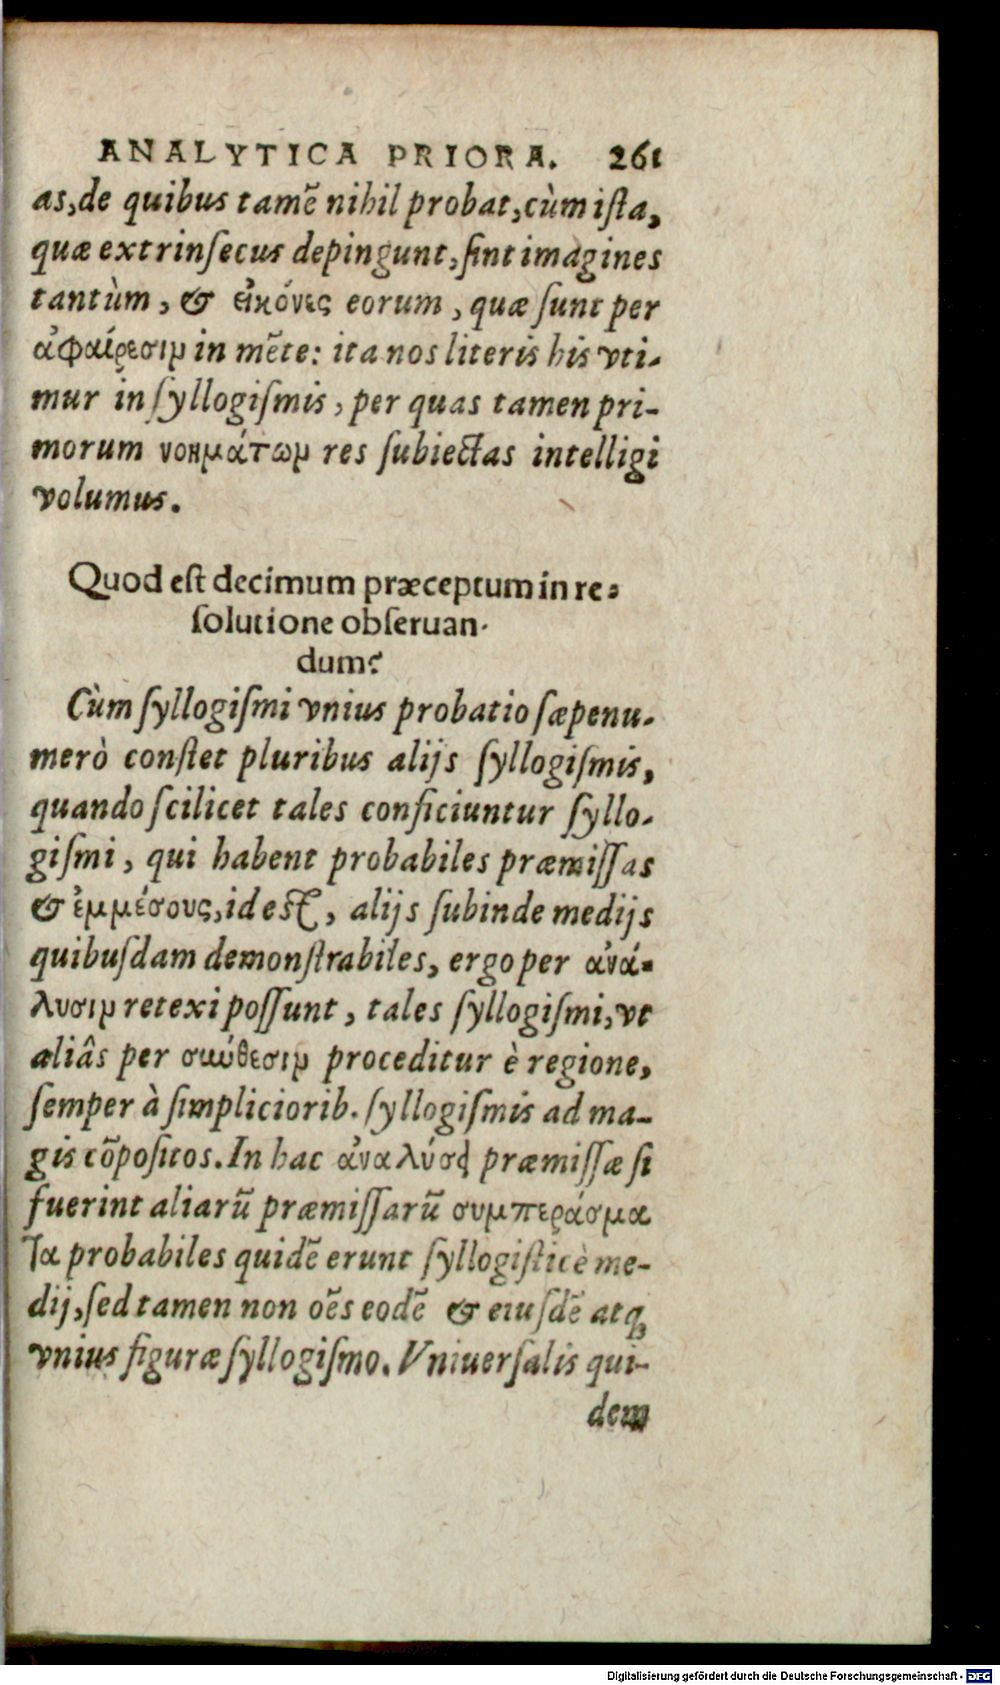 ANALYTICA PRIORA. 261
as, de quibus tamē nihil probat, cùm ista,
quæ extrinſecus depingunt, ſint imagines
tantùm, & εἰκόνες eorum, quæ ſunt per
ἀφαίρεσιν in mēte: ita nos literis his vti-
mur in ſyllogiſmis, per quas tamen pri-
morum νοημάτων res ſubiectas intelligi
volumus.
Quod eſt decimum præceptum in re-
ſolutione obſeruan-
dum?
Cùm ſyllogiſmi vnius probatio ſæpenu-
merò conſtet pluribus alijs ſyllogiſmis,
quando ſcilicet tales conficiuntur ſyllo-
giſmi, qui habent probabiles præmiſſas
& ἐμμέσους, id eſt, alijs ſubinde medijs
quibuſdam demonſtrabiles, ergo per ἀνά-
λυσιν retexi poſſunt, tales ſyllogiſmi, vt
aliâs per σύνθεσιν proceditur è regione,
ſemper à ſimpliciorib. ſyllogiſmis ad ma-
gis cōpoſitos. In hac ἀναλύσει præmiſſæ ſi
fuerint aliarū præmiſſarū συμπεράσμα
τα probabiles quidē erunt ſyllogiſticè me-
dij, ſed tamen non oēs eodē & eiuſdē atq;
vnius figuræ ſyllogiſmo. Vniuerſalis qui-
dem
Digitalisierung gefördert durch die Deutsche Forschungsgemeinschaft - DFG